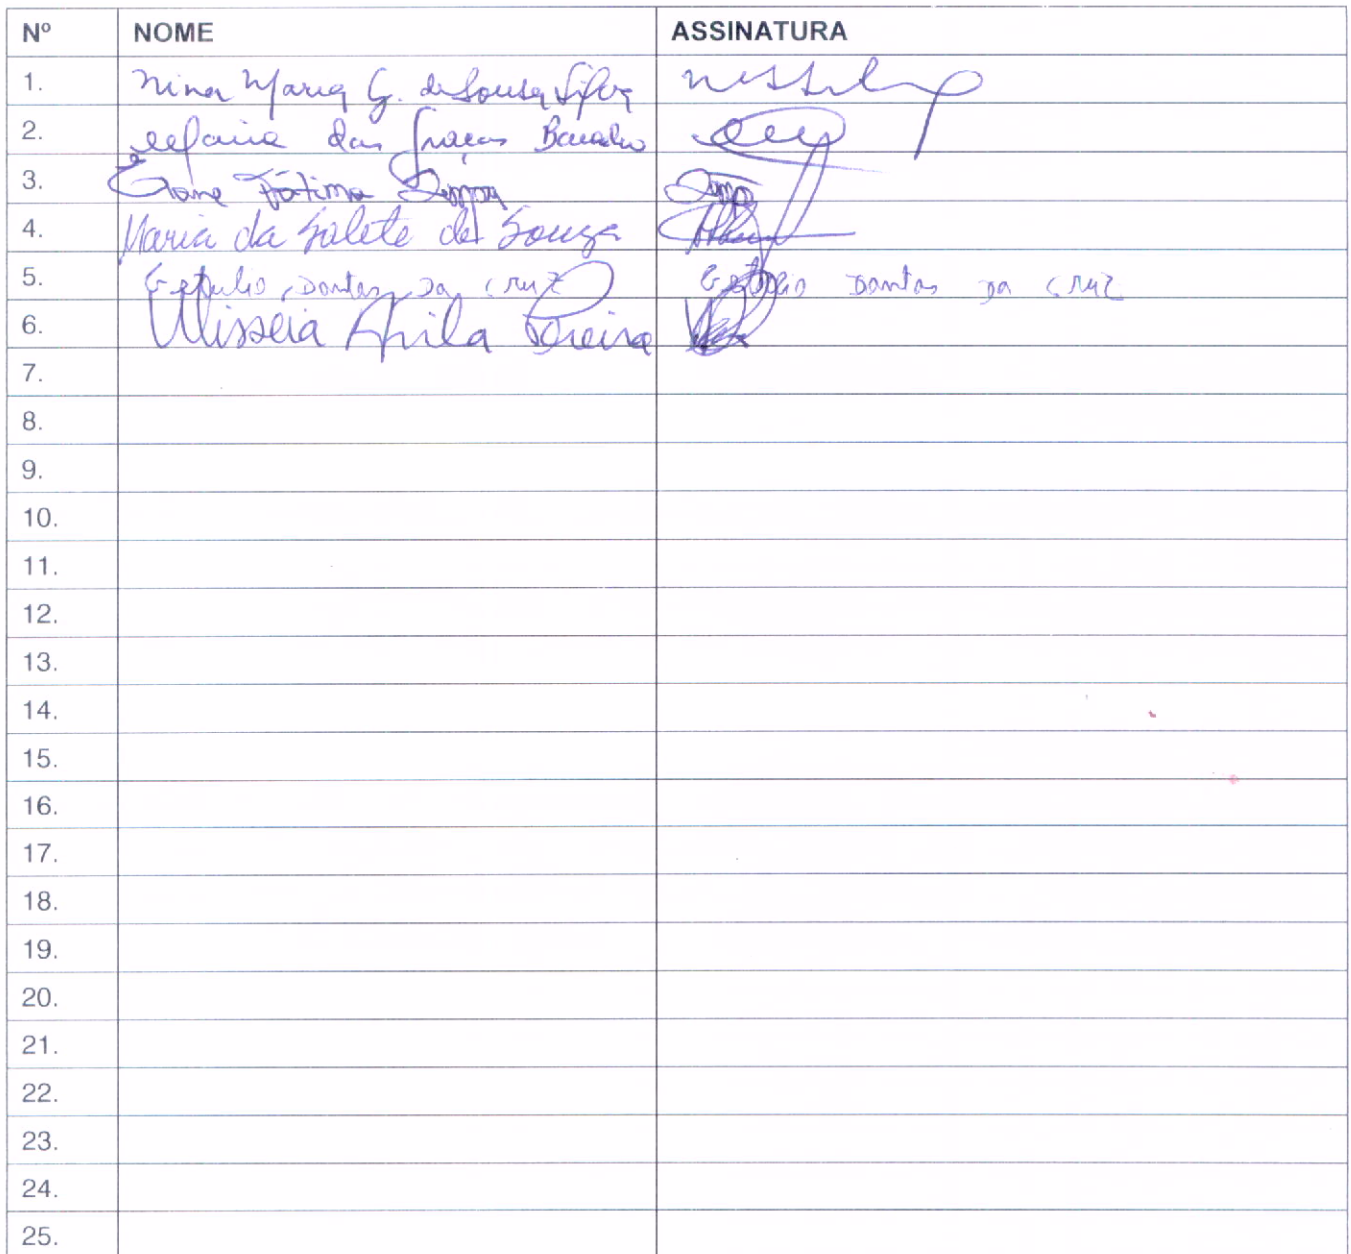 Nº NOME ASSINATURA
1. Nina Maria G. de Sousa Silva
2. Maria das Graças
3. Fátima
4. Maria da Salete de Souza
5. Getulio Dantas da Cruz Getulio Dantas da Cruz
6. Ulisseia Ávila Pereira
7.
8.
9.
10.
11.
12.
13.
14.
15.
16.
17.
18.
19.
20.
21.
22.
23.
24.
25.